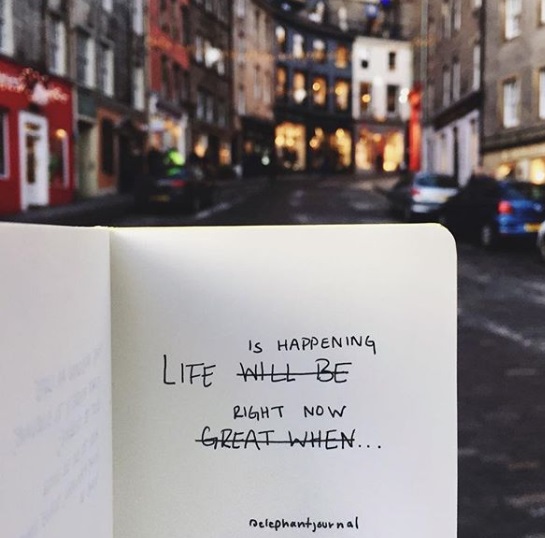 IS HAPPENING
LIFE WILL BE
RIGHT NOW
GREAT WHEN...
@elephantjournal